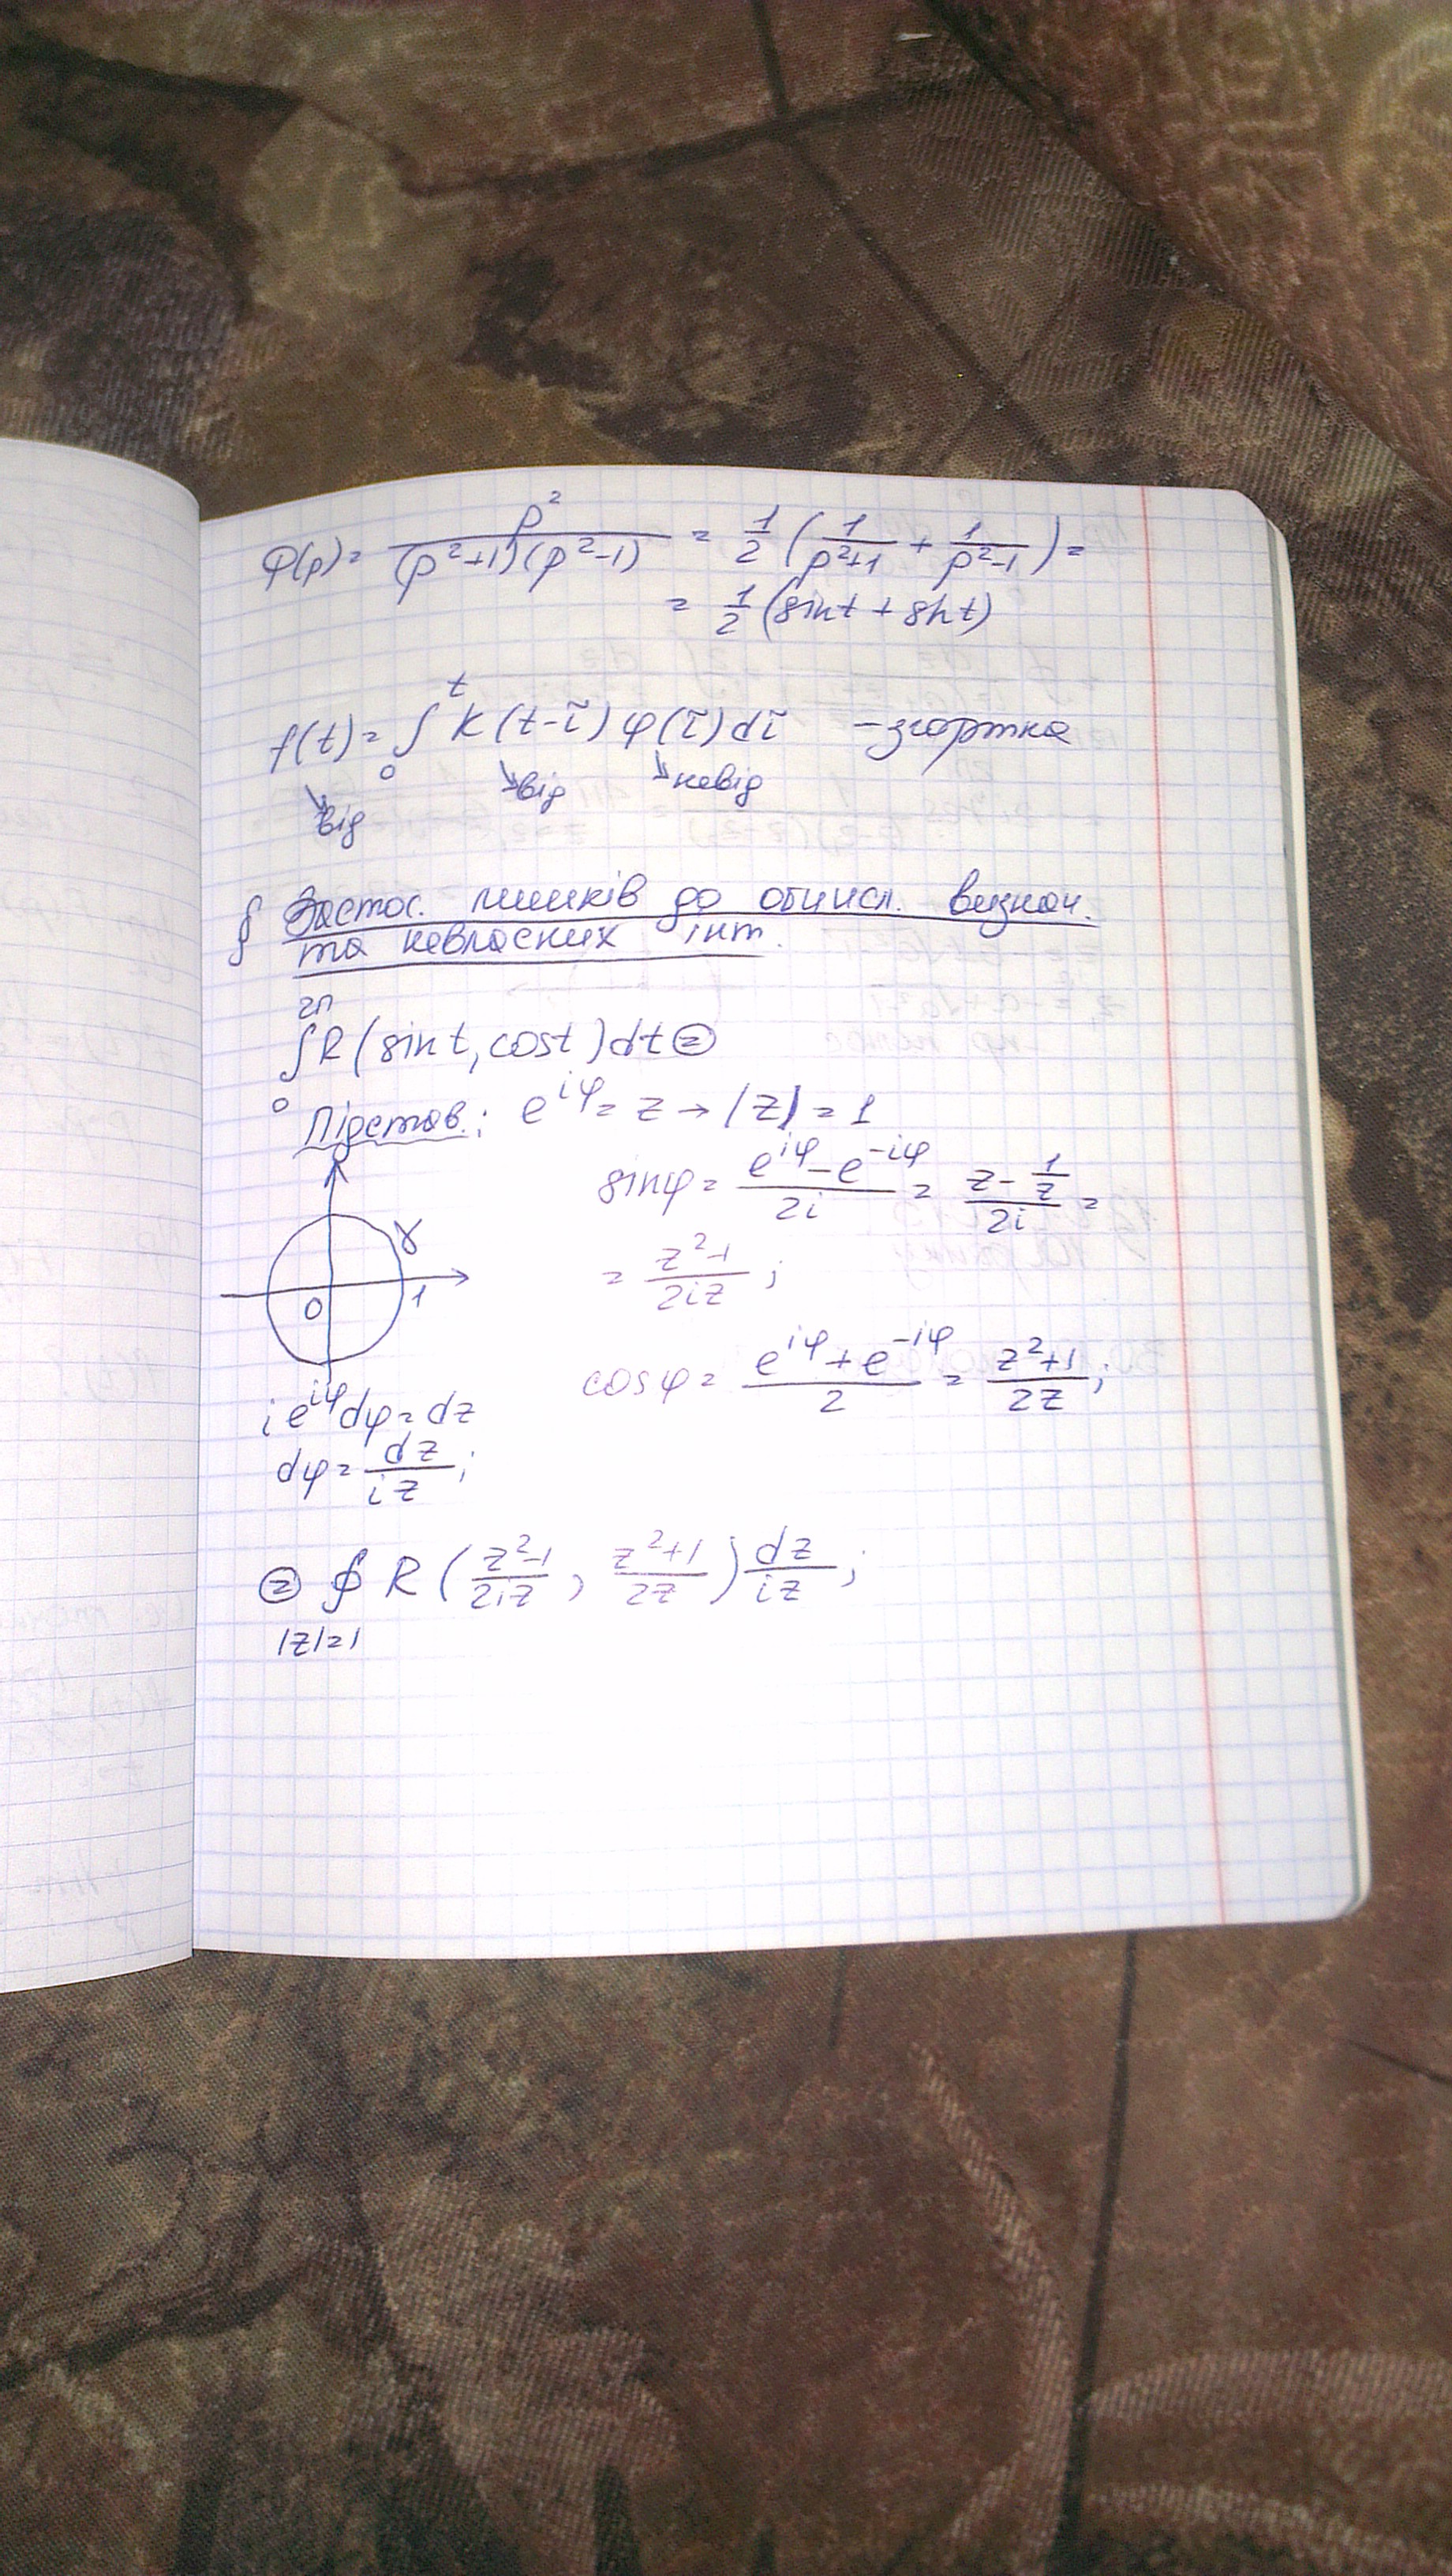 Φ(p) = p² / ((p²+1)(p²-1)) = 1/2 (1/(p²+1) + 1/(p²-1)) =
= 1/2 (sint + sht)
f(t) = ∫₀ᵗ K(t-τ) φ(τ) dτ - згортка
↘від ↘від ↘невід
§ Застос. лишків до обчисл. визнач.
та невласних інт.
∫₀²π R(sint, cost)dt ⊜
Підстав.: e^{iφ} = z → |z| = 1
sinφ = (e^{iφ} - e^{-iφ})/2i = (z - 1/z)/2i =
= (z²-1)/2iz ;
γ
0 1
cosφ = (e^{iφ} + e^{-iφ})/2 = (z²+1)/2z ;
i e^{iφ} dφ = dz
dφ = dz/iz ;
⊜ ∮ R((z²-1)/2iz , (z²+1)/2z) dz/iz ;
|z|=1